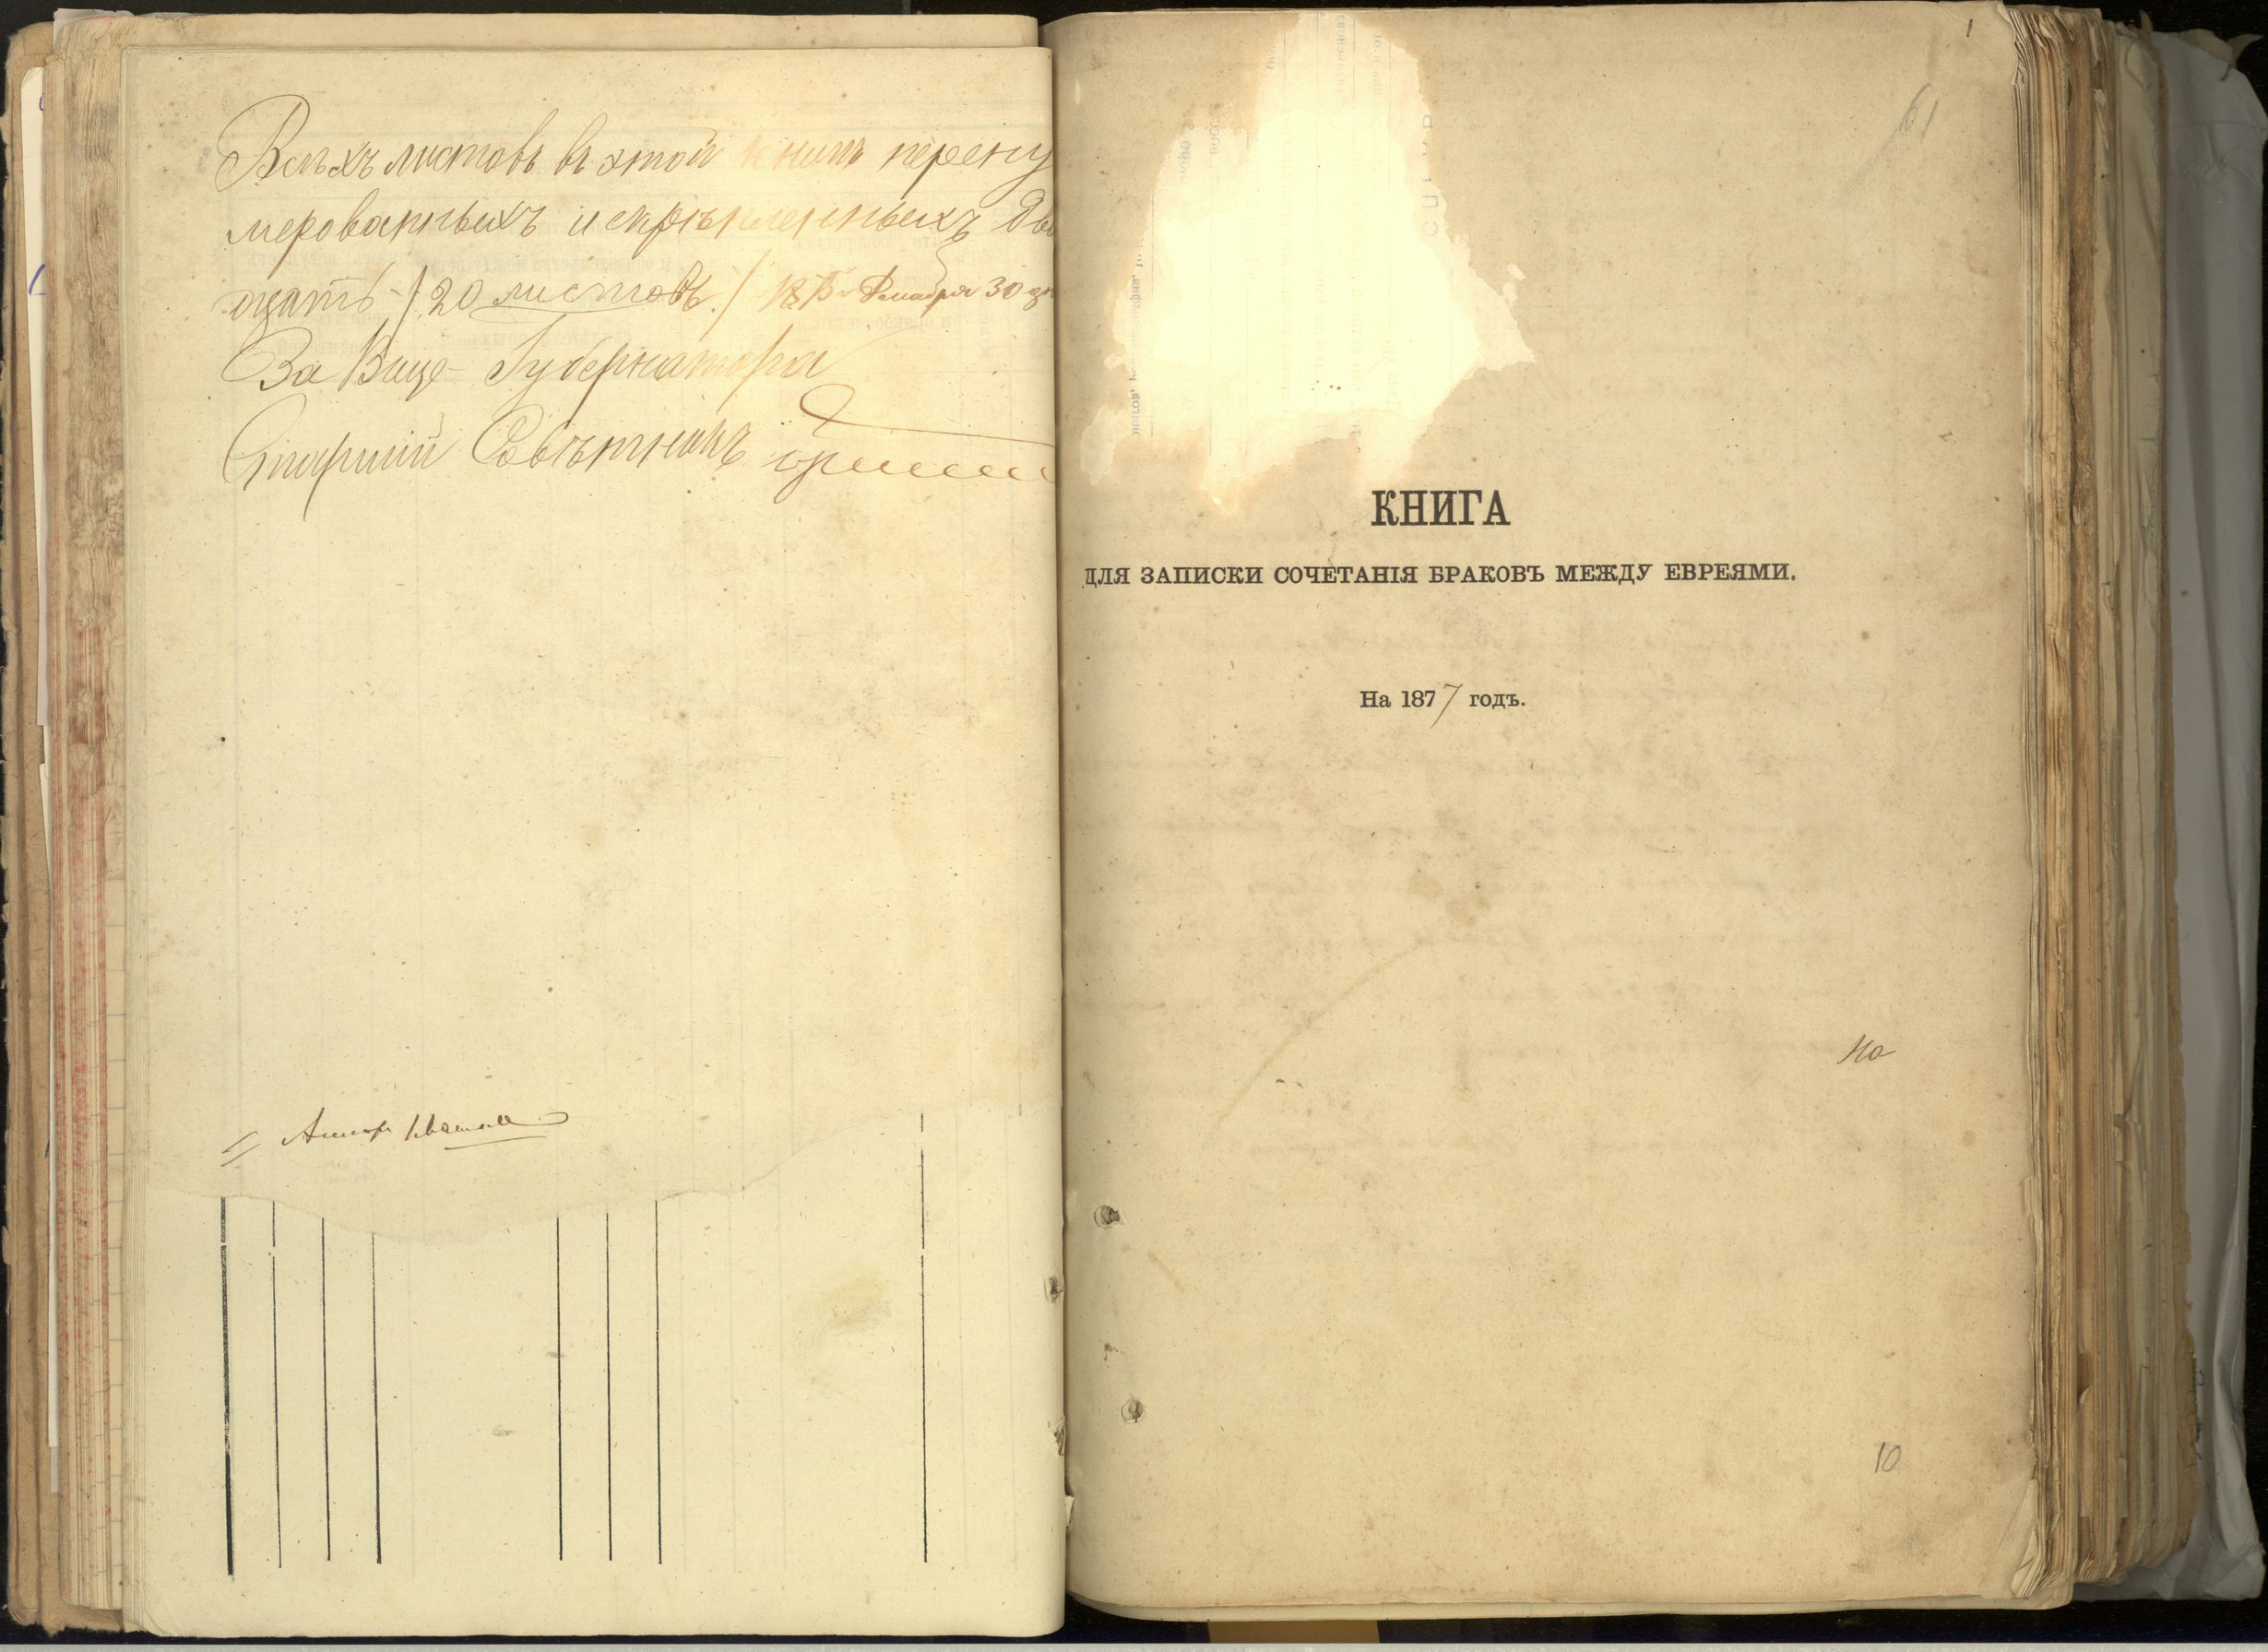 Всѣхъ листовъ въ этой книгѣ перену
мерованныхъ и скрѣпленныхъ два
дцать /20 листовъ./ Декабря 30 дн
За Вице-Губернатора
Старшій Совѣтникъ
1
61
КНИГА
ДЛЯ ЗАПИСКИ СОЧЕТАНІЯ БРАКОВЪ МЕЖДУ ЕВРЕЯМИ.
На 1877 годъ.
По
10